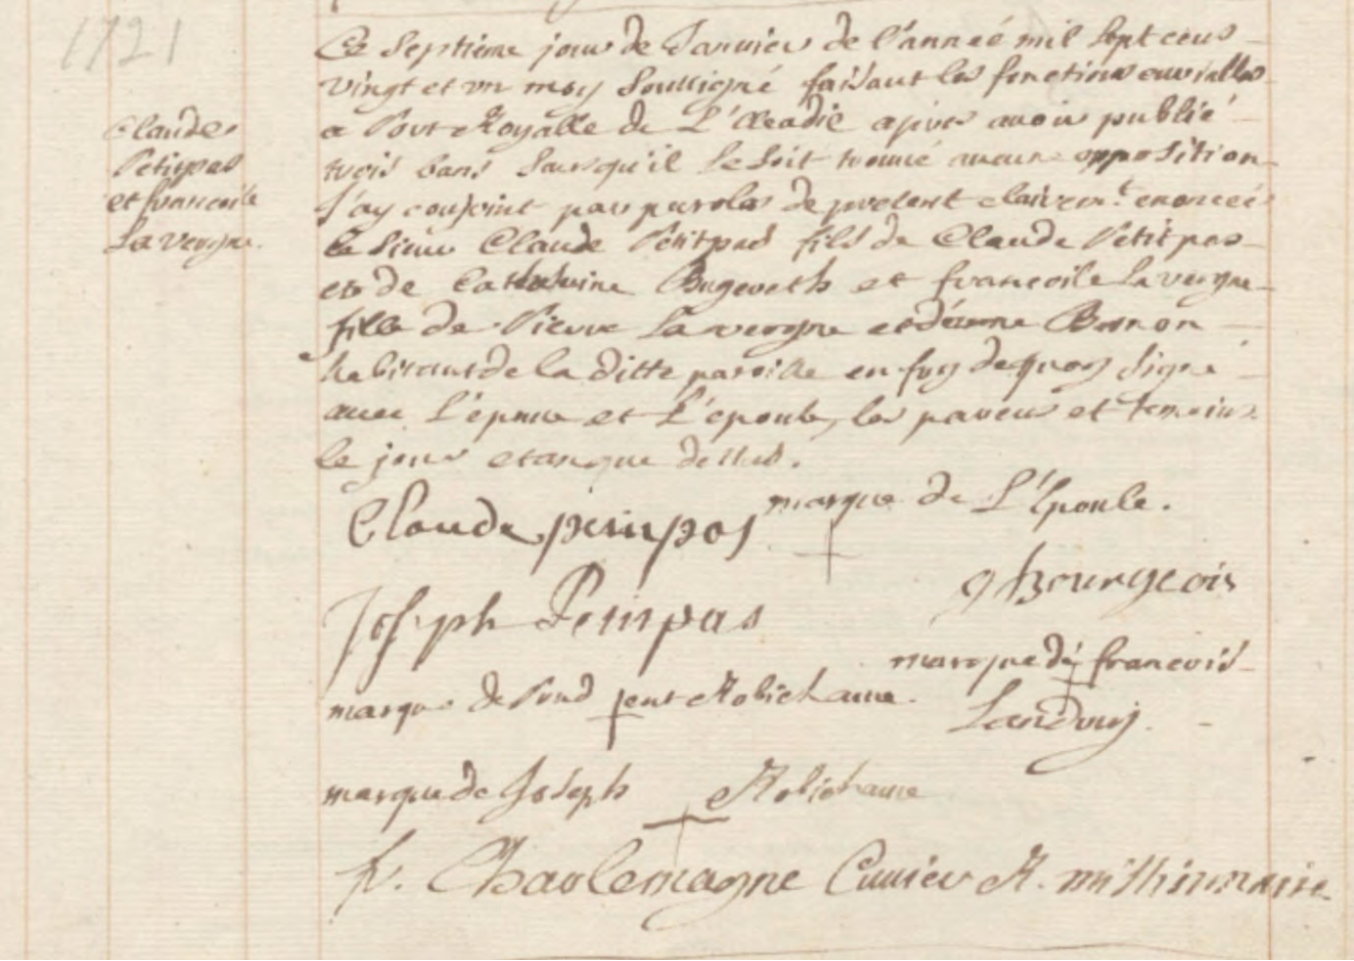 1721
Ce Septieme jour de Janvier de l'anneé mil sept cens
vingt et un moy Soussigné faisant les fonctions curialles
a Port Royalle de L'Accadie apres avoir publié
trois bans sans qu'il se soit trouvé aucune opposition
J'ay conjoint par paroles de present clairemt. enonceés
le Sieur Claude Petitpas fils de Claude Petitpas
et de Catherine Bugereth et francoise La vergne
fille de Pierre La vergne et d'anne Bernon
habitants de la ditte paroisse en foy dequoy Signé
avec L'epoux et L'epouse, les parens et temoins
le jour et an que dessus.
Claude
Petitpas
et francoise
La vergne.
Claude petitpas marque de L'Epouse.
g bourgeois
Joseph Petitpas
marque de francois
Landry.
marque de Prud jent Robichaux.
marque de Joseph Robichaux
fr. Charlemagne Cuvier R. missionnaire